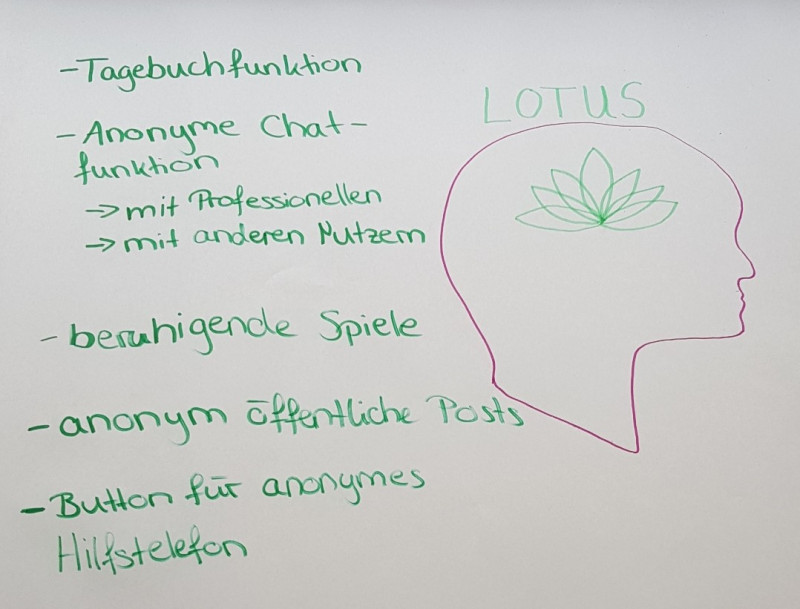 - Tagebuchfunktion
- Anonyme Chat-
funktion
→ mit Professionellen
→ mit anderen Nutzern
- beruhigende Spiele
- anonym öffentliche Posts
- Button für anonymes
Hilfstelefon
LOTUS